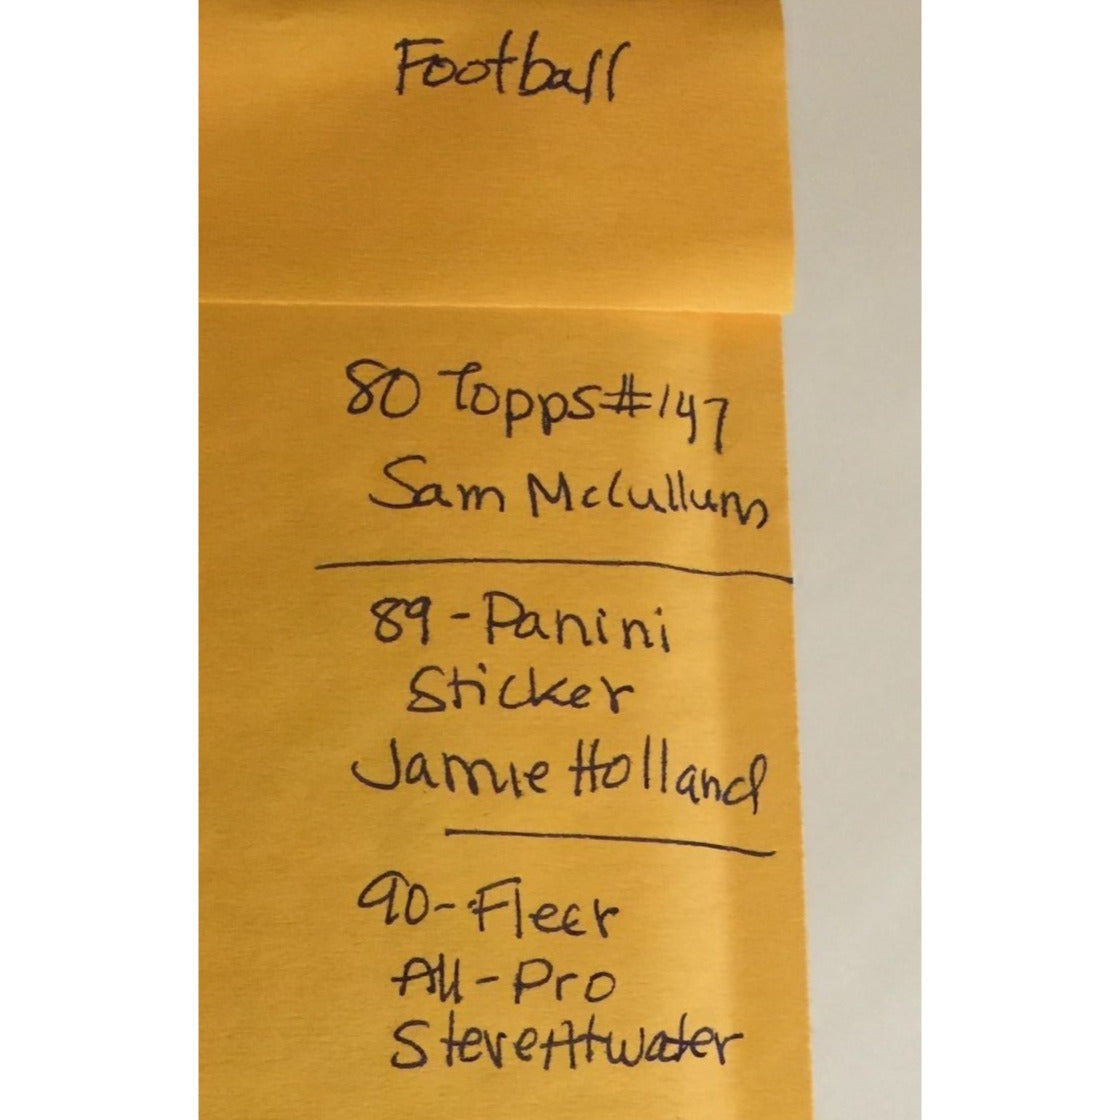 Football
80 Topps #147
Sam McCullum
89-Panini
Sticker
Jamie Holland
90-Fleer
All-Pro
Steve Atwater